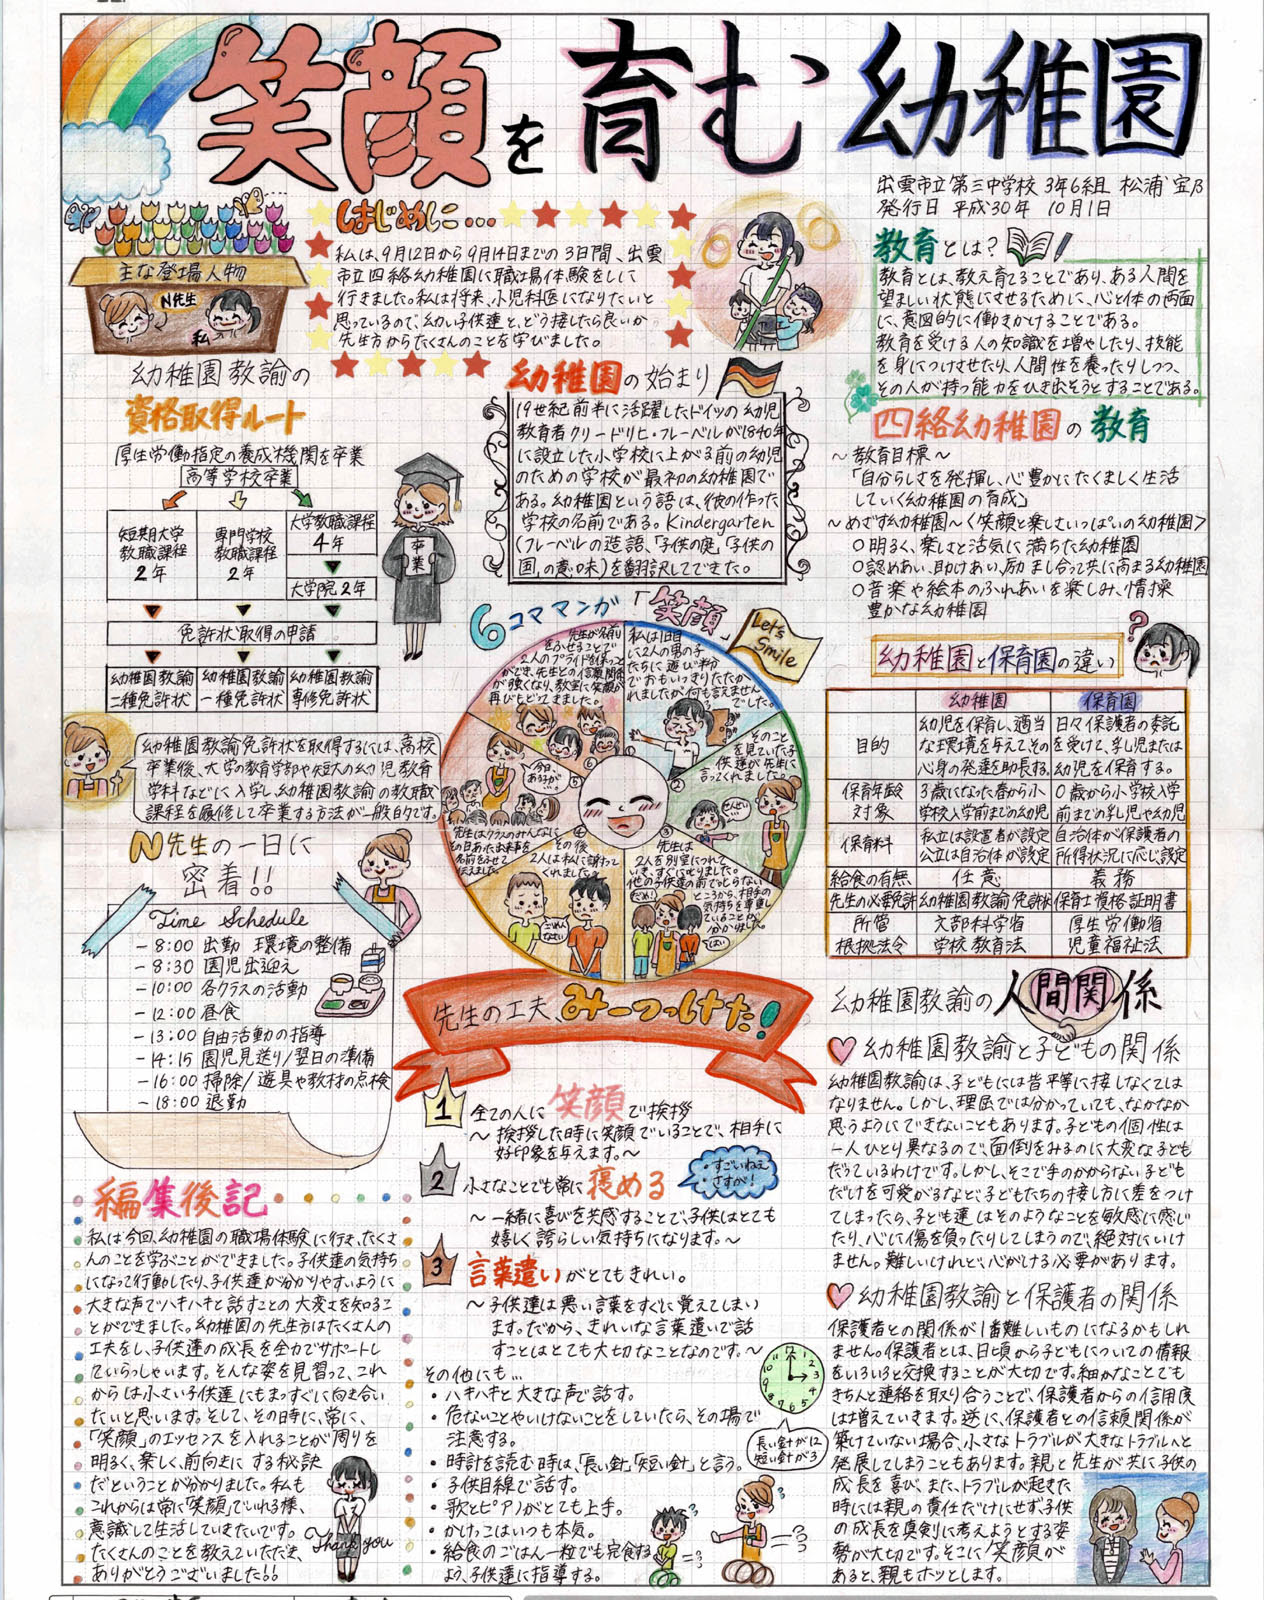 笑顔を育む幼稚園
出雲市立第三中学校 3年6組 松浦
発行日 平成30年 10月1日
主な登場人物
N先生
私
はじめに…
私は、9月12日から9月14日までの3日間、出雲
市立四絡幼稚園に職場体験をしに
行きました。私は将来、小児科医になりたいと
思っているので、幼い子供達と、どう接したら良いか
先生方からたくさんのことを学びました。
教育とは?
教育とは、教え育てることであり、ある人間を
望ましい状態にさせるために、心と体の両面
に、意図的に働きかけることである。
教育を受ける人の知識を増やしたり、技能
を身につけさせたり、人間性を養ったりしつつ、
その人が持つ能力をひき出そうとすることである。
幼稚園教諭の
資格取得ルート
厚生労働指定の養成機関を卒業
高等学校卒業
短期大学
教職課程
2年
専門学校
教職課程
2年
大学教職課程
4年
大学院2年
免許状取得の申請
幼稚園教諭
二種免許状
幼稚園教諭
一種免許状
幼稚園教諭
専修免許状
卒業
幼稚園教諭免許状を取得するには、高校
卒業後、大学の教育学部や短大の幼児教育
学科などに入学し幼稚園教諭の教職
課程を履修して卒業する方法が一般的です。
幼稚園の始まり
19世紀前半に活躍したドイツの幼児
教育者フリードリヒ・フレーベルが1840年
に設立した小学校に上がる前の幼児
のための学校が最初の幼稚園で
ある。幼稚園という語は、彼の作った
学校の名前である。Kindergarten
(フレーベルの造語、「子供の庭」「子供の
国」の意味)を翻訳してできた。
四絡幼稚園の教育
〜教育目標〜
「自分らしさを発揮し、心豊かにたくましく生活
していく幼稚園の育成」
〜めざす幼稚園〜〈笑顔と楽しさいっぱいの幼稚園〉
○明るく、楽しさと活気に満ちた幼稚園
○認めあい、助けあい、励まし合って共に高まる幼稚園
○音楽や絵本のふれあいを楽しみ、情操
豊かな幼稚園
6コママンガ「笑顔」
Let's
Smile
私は1日目
に2人の男の子
たちに遊び半分
でおもいっきりたたか
れましたが何も言えません
でした。
①
そのこと
を見ていた子
供達が先生に
言ってくれました。
②
せんせい
③
先生は
2人を別室につれて
いき、すぐに叱りました。
他の子供達の前でしからない
ところから、相手の
気持ちを尊重し
ていることが
分かりました。
だめ!
はい
④
その後
2人は私に謝って
くれました。
ごめん
なさい
⑤
先生はクラスのみんなに
その日あった出来事を
名前をふせて
伝えました。
今日、
あるが…
⑥
先生が名前
をふせることで
2人のプライドを保つこと
ができ、先生との信頼関係
が強くなり、教室に笑顔が
再びもどってきました。
幼稚園と保育園の違い
幼稚園 保育園
目的 幼児を保育し、適当な環境を与えてその心身の発達を助長する。 日々保護者の委託を受けて、乳児または幼児を保育する。
保育年齢対象 3歳になった春から小学校入学前までの幼児 0歳から小学校入学前までの乳児や幼児
保育料 私立は設置者が設定 公立は自治体が設定 自治体が保護者の所得状況に応じ設定
給食の有無 任意 義務
先生の必要免許 幼稚園教諭免許状 保育士資格証明書
所管 文部科学省 厚生労働省
根拠法令 学校教育法 児童福祉法
N先生の一日に
密着!!
Time Schedule
- 8:00 出勤 環境の整備
- 8:30 園児出迎え
- 10:00 各クラスの活動
- 12:00 昼食
- 13:00 自由活動の指導
- 14:15 園児見送り/翌日の準備
- 16:00 掃除/遊具や教材の点検
- 18:00 退勤
先生の工夫、みーつっけた!
1 全ての人に笑顔で挨拶
〜挨拶した時に笑顔でいることで、相手に
好印象を与えます。〜
2 小さなことでも常に褒める
・すごいねぇ
・さすが!
〜一緒に喜びを共感することで、子供はとても
嬉しく誇らしい気持ちになります。〜
3 言葉遣いがとてもきれい。
〜子供達は悪い言葉をすぐに覚えてしまい
ます。だから、きれいな言葉遣いで話
すことはとても大切なことなのです。〜
その他にも…
・ハキハキと大きな声で話す。
・危ないことやいけないことをしていたら、その場で
注意する。
・時計を読む時は、「長い針」「短い針」と言う。
長い針が12
短い針が3
・子供目線で話す。
・歌とピアノがとても上手。
・かけっこはいつも本気。
・給食のごはん一粒でも完食する
よう、子供達に指導する。
幼稚園教諭の人間関係
幼稚園教諭と子どもの関係
幼稚園教諭は、子どもには皆平等に接しなくては
なりません。しかし、理屈では分かっていても、なかなか
思うようにできないこともあります。子どもの個性は
一人ひとり異なるので、面倒をみるのに大変な子ども
だっているわけです。しかし、そこで手のかからない子ども
だけを可愛がるなど、子どもたちの接し方に差をつけ
てしまったら、子ども達はそのようなことを敏感に感じ
たり、心に傷を負ったりしてしまうので、絶対にいけ
ません。難しいけれど、心がける必要があります。
幼稚園教諭と保護者の関係
保護者との関係が1番難しいものになるかもしれ
ません。保護者とは、日頃から子どもについての情報
をいろいろと交換することが大切です。細かなことでも
きちんと連絡を取り合うことで、保護者からの信用度
は増えていきます。逆に、保護者との信頼関係が
築けていない場合、小さなトラブルが大きなトラブルへと
発展してしまうこともあります。親と先生が共に子供の
成長を喜び、また、トラブルが起きた
時には親の責任だけにせず子供
の成長を真剣に考えようとする姿
勢が大切です。そこに笑顔が
あると、親もホッとします。
編集後記
私は今回、幼稚園の職場体験に行き、たくさ
んのことを学ぶことができました。子供達の気持ち
になって行動したり、子供達が分かりやすいように
大きな声でハキハキと話すことの大変さを知るこ
とができました。幼稚園の先生方はたくさんの
工夫をし、子供達の成長を全力でサポートし
ていらっしゃいます。そんな姿を見習って、これ
からは小さい子供達にもまっすぐに向き合い
たいと思います。そして、その時に、常に、
「笑顔」のエッセンスを入れることが周りを
明るく、楽しく、前向きにする秘訣
だということが分かりました。私も
これからは常に「笑顔」でいれる様、
意識して生活していきたいです。
たくさんのことを教えていただき、
ありがとうございました!!
Thank you